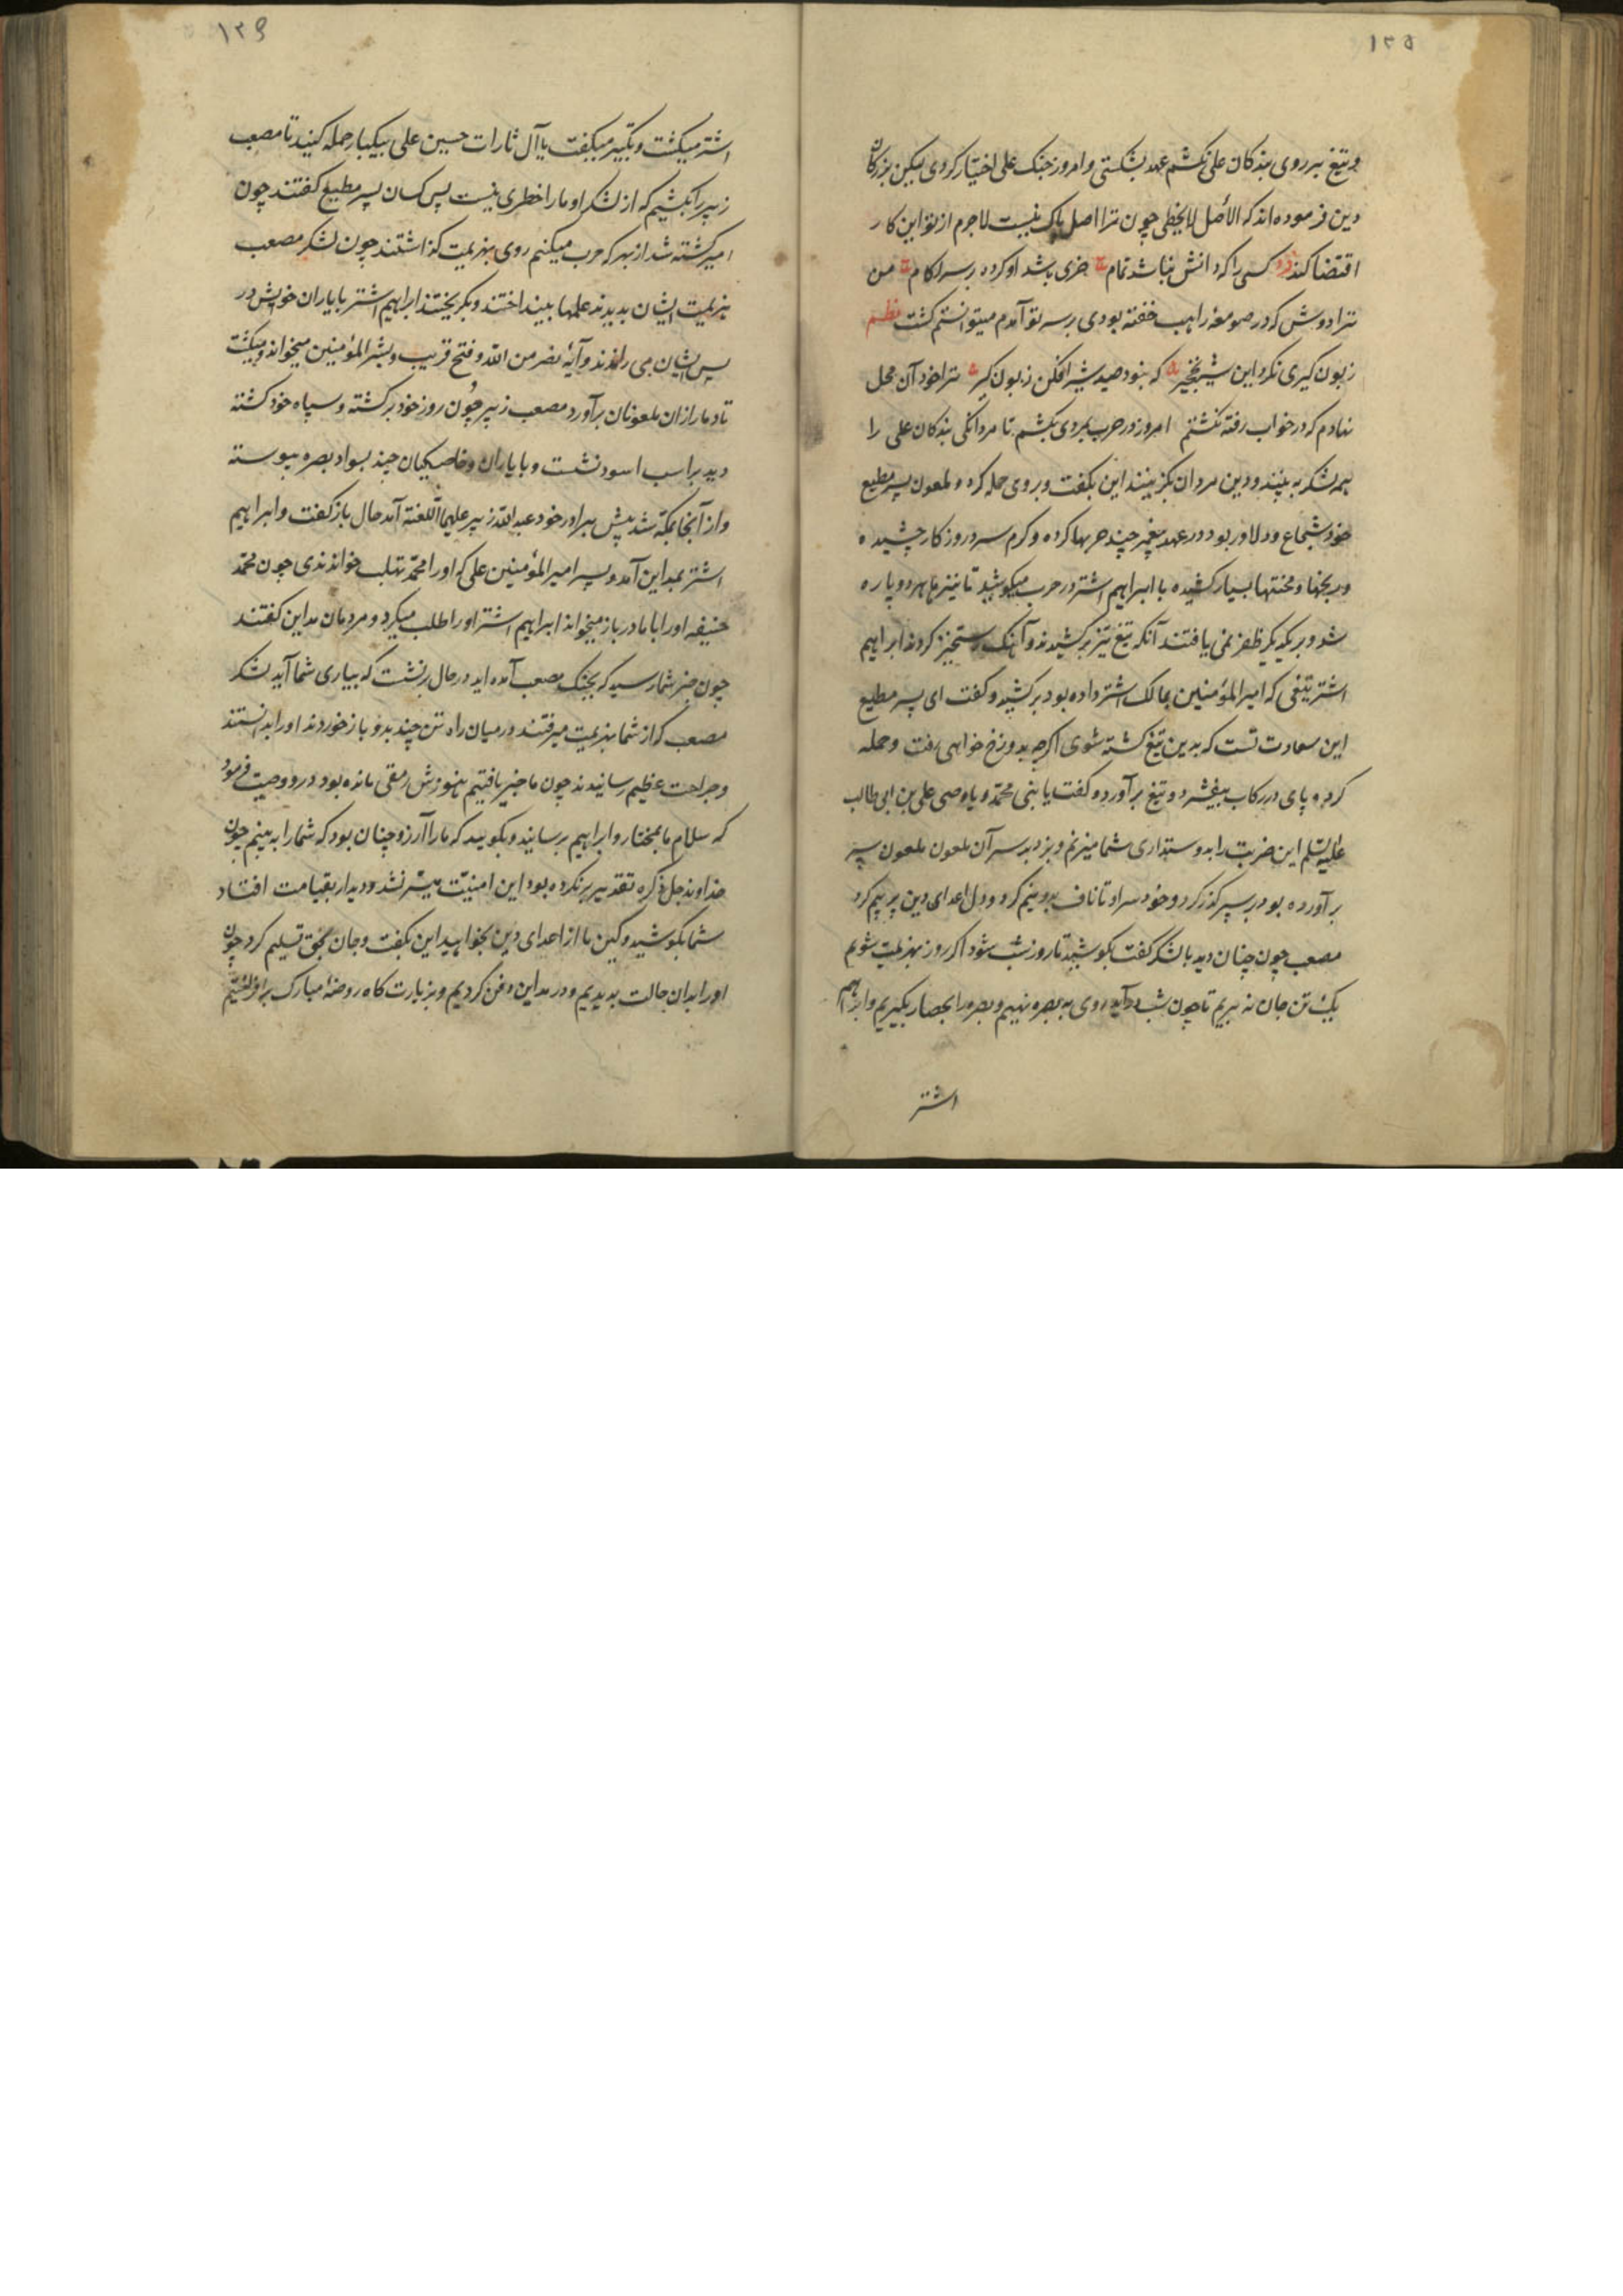 ۱۳۵
و تیغ بر روی بندکان علی نکشم عهد بشکستی و امروز جنک علی اختیار کردی لیکن بزرکان
دین فرموده اند که الأصل لا یخطی چون ترا اصل پاک نیست لاجرم از تو این کار
اقتضا کند فرد کسی را که دانش نباشد تمام خری باشد او کرده بر سر لکام من
ترا دوش که در صومعۀ راهب خفته بودی بر سر تو آمدم میتوانستم کشت نظم
زبون کیری نکرد این شیر نخجیر که نبود صید شیر افکن زبون کیر ترا خود آن محل
ندادم که در خواب رفته نکشتم امروز در حرب بمردی بکشم تا مردانکی بندکان علی را
همه لشکر به بینند و دین مردان بکزینند این بکفت و بر وی حمله کرد و ملعون پسر مطیع
خود شجاع و دلاور بود و در عهد پیغمبر چند حربها کرده و کرم و سرد روزکار چشیده
و رنجها و محنتها بسیار کشیده با ابراهیم اشتر در حرب میکوشید تا نیزها هر دو پاره
شد و بر یکدیکر ظفر نمی یافتند آنکه تیغ تیز بر کشیدند و آهنک رستخیز کردند ابراهیم
اشتر تیغی که امیرالمؤمنین بمالک اشتر داده بود بر کشید و کفت ای پسر مطیع
این سعادت تست که بدین تیغ کشته شوی اکرچه بدوزخ خواهی رفت و حمله
کرد و پای در رکاب بیفشرد و تیغ بر آورد و کفت یا نبی محمد و یا وصی علی بن ابی طالب
علیه السلم این ضربت را بدوستداری شما میزنم و بزد بر سر آن ملعون ملعون سپر
بر آورده بود بر سپر کذر کرد و خود سر او تا ناف بدو نیم کرد و دل اعدای دین پر بیم کرد
مصعب چون چنان دید با لشکر کفت بکوشید تا روز شب شود اکر روز بهزیمت شویم
یک تن جان نه بریم تا چون شب درآید روی به بصره نهیم و بصره را بحصار بکیریم و ابراهیم
اشتر
۱۳۶
اشتر میکشت و تکبیر میکفت یا آل ثارات حسین علی بیکبار حمله کنید تا مصعب
زبیر را بکشیم که از لشکر او ما را خطری نیست پس کسان پسر مطیع کفتند چون
امیر کشته شد از بهر که حرب میکنیم روی بهزیمت کذاشتند چون لشکر مصعب
هزیمت ایشان بدیدند علمها بینداختند و بکریختند ابراهیم اشتر با یاران خویش در
پس ایشان می راندند و آیۀ نصر من الله و فتح قریب و بشر المؤمنین میخواند و میکشت
تا دمار از ان ملعونان برآورد مصعب زبیر چون روز خود برکشته و سپاه خود کشته
دید بر اسب اسود نشست و با یاران و خاصکیان چند بسواد بصره پیوسته
و از آنجا بمکه شد پیش برادر خود عبدالله زبیر علیهما اللعنة آمد حال باز کفت و ابراهیم
اشتر بمداین آمد و پسر امیرالمؤمنین علی که او را محمد تهلب خواندندی چون محمد
حنیفه او را با مادر باز میخواند ابراهیم اشتر او را طلب میکرد و مردمان مداین کفتند
چون خبر شما رسید که بجنک مصعب آمده اید در حال بر نشست که بیاری شما آید لشکر
مصعب که از شما بهزیمت میرفتند در میان راه تن چند بدو باز خوردند او را بدانستند
و جراحت عظیم رسانیدند چون ما خبر یافتیم هنوزش رمقی مانده بود درود وصیت فرمود
که سلام ما بمختار و ابراهیم برسانید و بکویید که ما را آرزو چنان بود که شما را به بینم چون
خداوند جل ذکره تقدیر برنکرده بود این امنیت میسر نشد و دیدار بقیامت افتاد
شما بکوشید و کین ما از اعدای دین بخواهید این بکفت و جان بحق تسلیم کرد چون
او را بدان حالت بدیدیم و در مداین دفن کردیم و بزیارت کاه روضۀ مبارک برافراشتیم